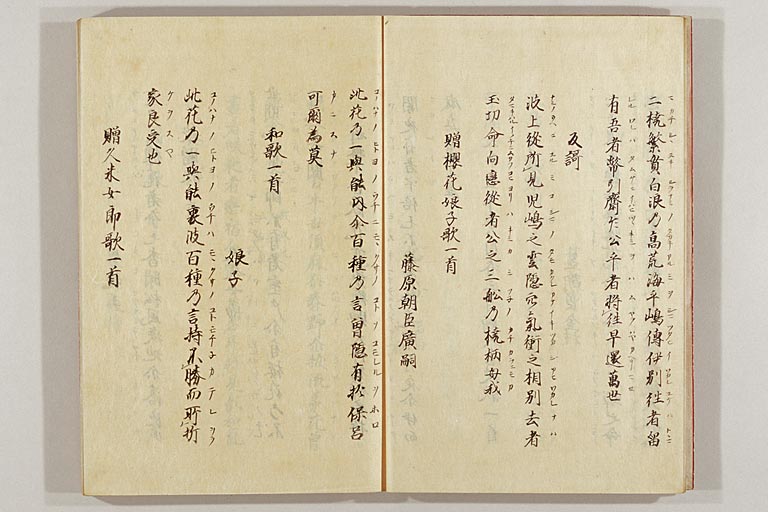 二梶繁貫白浪乃高荒海乎嶋傳伊別徃者留
有吾者幣引齊乍公乎者将徃早還萬世
反謌
波上從所見兒嶋之雲隠穴氣衝之相別去者
玉切命向戀從者公之三舶乃梶柄母我
贈櫻花娘子歌一首
藤原朝臣廣嗣
此花乃一與能内尓百種乃言曽隠有於保呂
可尓為莫
和歌一首
娘子
此花乃一與能裏波百種乃言持不勝而所折
家良受也
贈久米女郎歌一首